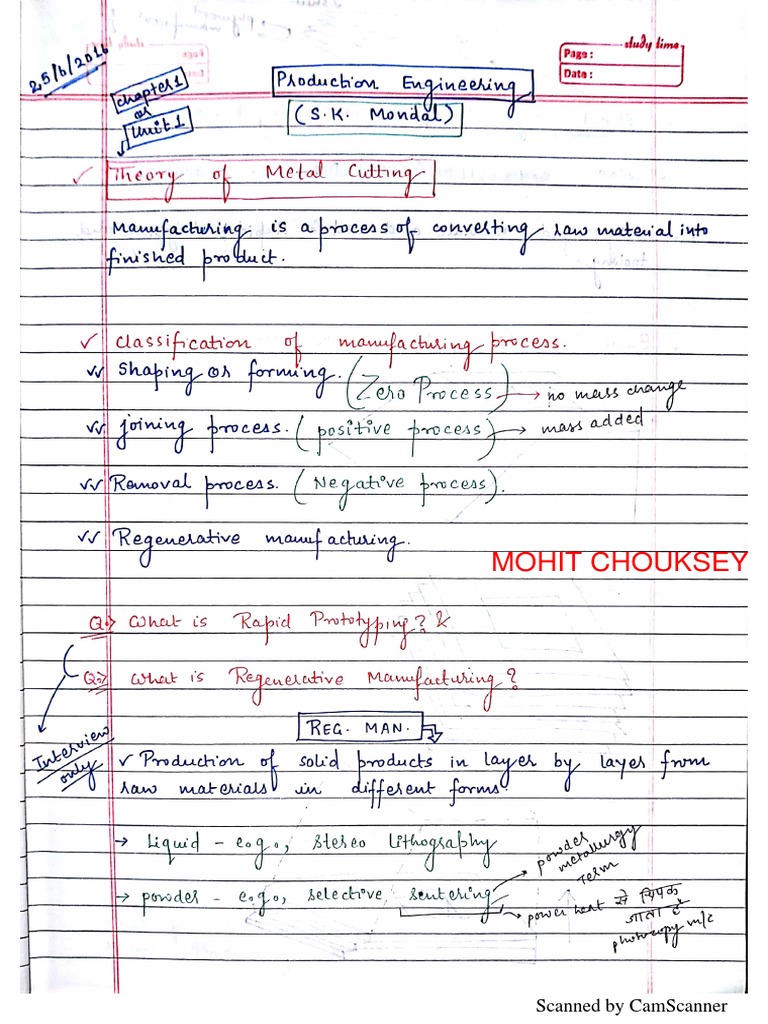 study time
Page :
Date :
25/6/2016
Chapter 1
or
Unit 1
Production Engineering
(S.K. Mondal)
Theory of Metal Cutting
Manufacturing is a process of converting raw material into
finished product.
classification of manufacturing process.
Shaping or forming. (Zero Process) → no mass change
joining process. (positive process) → mass added
Removal process. (Negative process).
Regenerative manufacturing.
MOHIT CHOUKSEY
Q.> What is Rapid Prototyping? &
Q.> What is Regenerative Manufacturing?
Interview
only
REG. MAN.
Production of solid products in layer by layer from
raw materials in different forms
→ Liquid – e.g., stereo lithography
→ powder – e.g., selective sentering
→ powder
metallurgy
term
→ power heat से चिपक
जाता है
photocopy m/c
Scanned by CamScanner